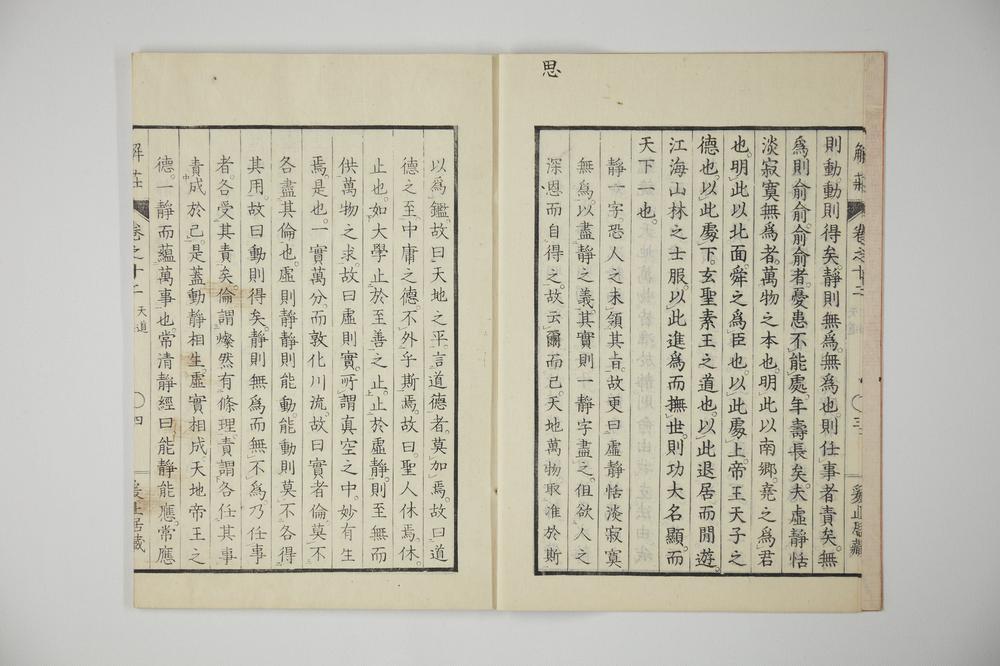 思
則動動則得矣。靜則無爲。無爲也。則任事者責矣。無
爲則俞俞。俞俞者。憂患不能處。年壽長矣。夫虛靜恬
淡寂寞無爲者。萬物之本也。明此以南鄉。堯之爲君
也。明此以北面。舜之爲臣也。以此處上。帝王天子之
德也。以此處下。玄聖素王之道也。以此退居而閒遊。
江海山林之士服。以此進爲而撫世。則功大名顯而
天下一也。
靜一字。恐人之未領其旨。故更曰虛靜恬淡寂寞
無爲。以盡靜之義。其實則一靜字盡之。但欲人之
深思而自得之。故云爾而已。天地萬物取准於斯
解莊 卷之十二 天道 三
以爲鑑。故曰天地之平。言道德者。莫加焉。故曰道
德之至。中庸之德。不外乎斯焉。故曰。聖人休焉。休
止也。如大學止於至善之止。止於虛靜。則至無而
供萬物之求。故曰虛則實。所謂真空之中。妙有生
焉。是也。一實萬分。而敦化川流。故曰實者倫。莫不
各盡其倫也。虛則靜。靜則能動。能動則莫不各得
其用。故曰動則得矣。靜則無爲而無不爲。乃任事
者。各受其責矣。倫謂燦然有條理。責謂各任其事
責成於己。是蓋動靜相生。虛實相成。天地帝王之
德。一靜而蘊萬事也。常清靜經曰能靜能應。常應
解莊 卷之十二 天道 四